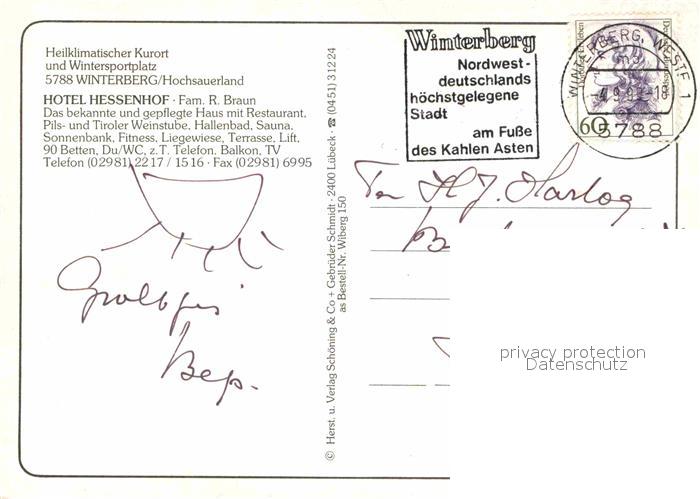 Heilklimatischer Kurort
und Wintersportplatz
5788 WINTERBERG/Hochsauerland
HOTEL HESSENHOF · Fam. R. Braun
Das bekannte und gepflegte Haus mit Restaurant,
Pils- und Tiroler Weinstube, Hallenbad, Sauna,
Sonnenbank, Fitness, Liegewiese, Terrasse, Lift,
90 Betten, Du/WC, z.T. Telefon, Balkon, TV
Telefon (02981) 2217 / 1516 · Fax (02981) 6995
Bep.
© Herst. u. Verlag Schöning & Co + Gebrüder Schmidt · 2400 Lübeck · ☎ (0451) 31224
as Bestell-Nr. Wiberg 150
Winterberg
Nordwest-
deutschlands
höchstgelegene
Stadt
am Fuße
des Kahlen Asten
WINTERBERG, WESTF 1
5788
60
Fam H.J. Hartog
privacy protection
Datenschutz